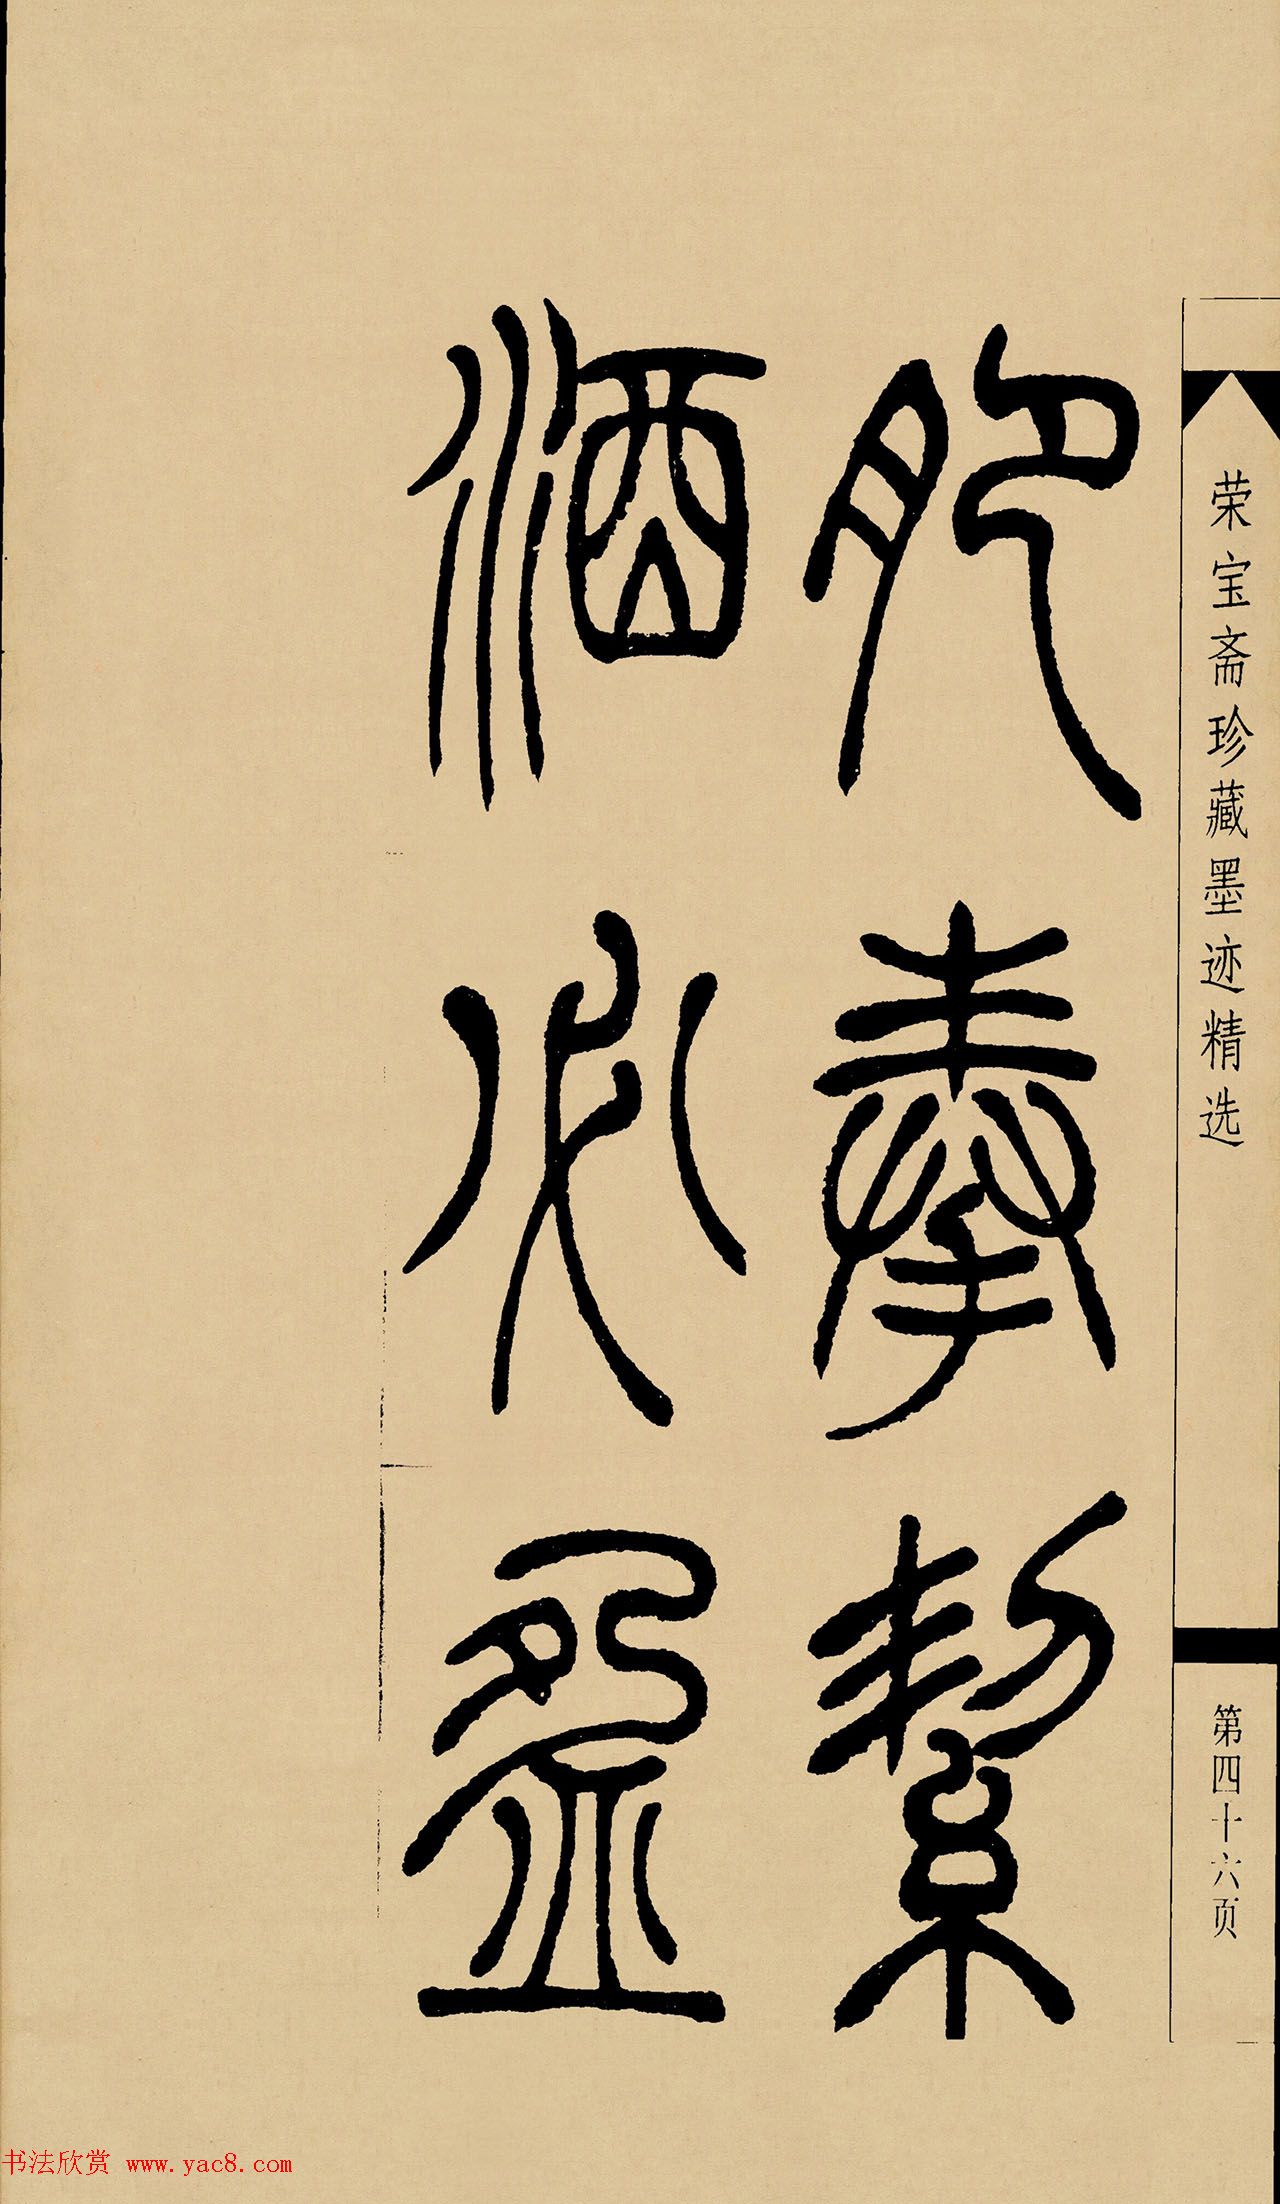 荣宝斋珍藏墨迹精选
第四十六页
肥奉絜
酒必盈
书法欣赏 www.yac8.com